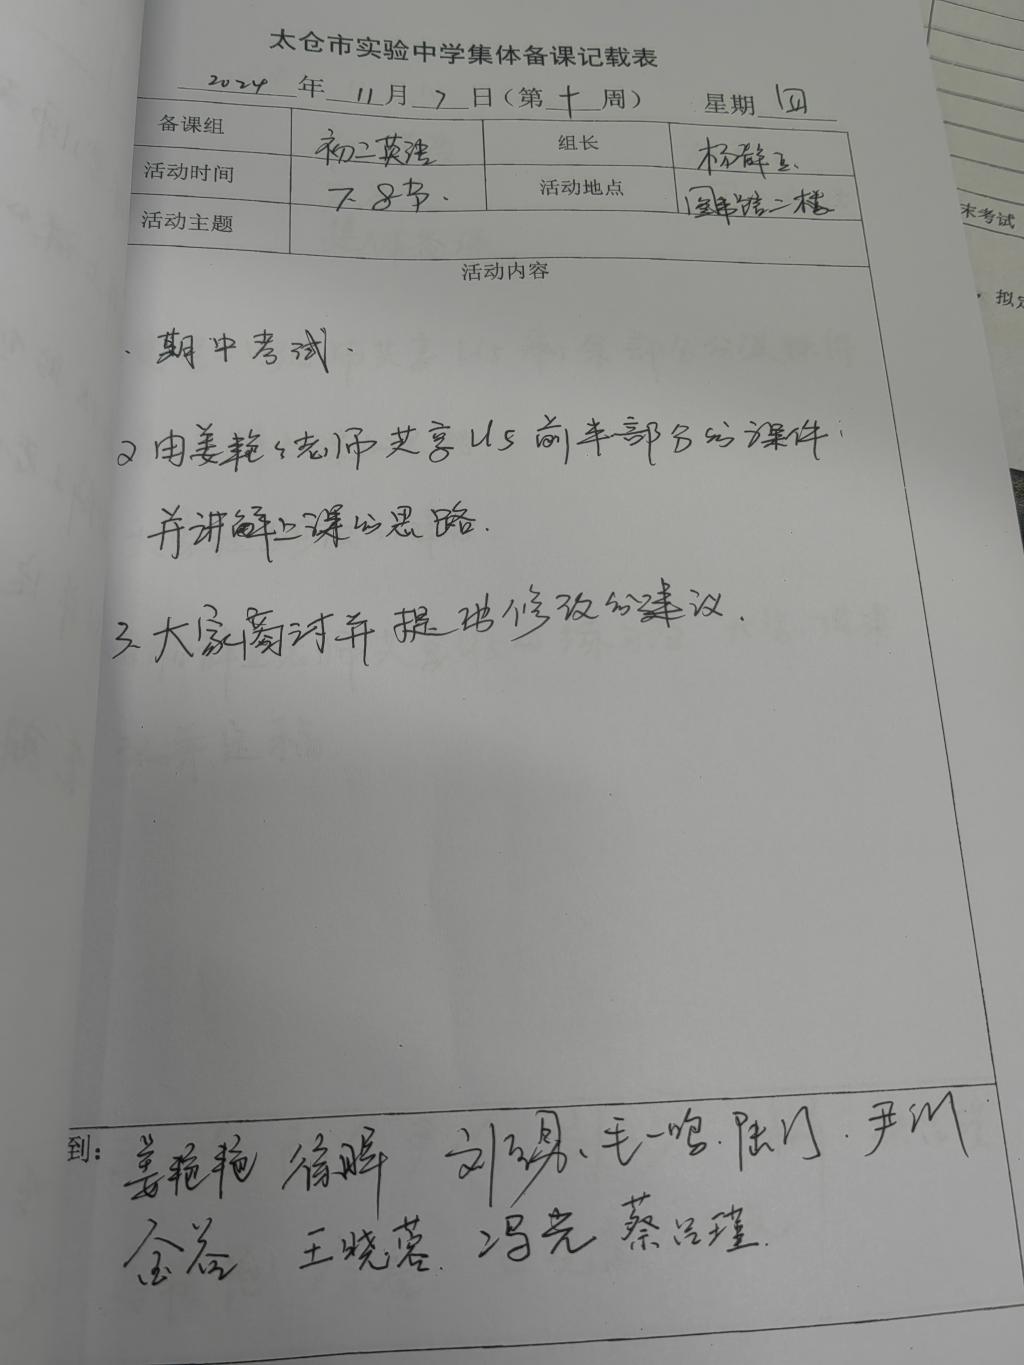 太仓市实验中学集体备课记载表
2024 年 11 月 7 日（第 十 周） 星期 四
备课组 初二英语 组长 杨静
活动时间 下8节. 活动地点 图书馆二楼
活动主题
活动内容
. 期中考试.
2 由姜艳艳老师共享U5前半部分的课件.
并讲解上课的思路.
3. 大家商讨并提出修改的建议.
到： 姜艳艳 徐晖 刘 毛一鸣. 陆 . 尹
金谷 王晓蓉. 冯 蔡吕瑾.
末考试
拟定